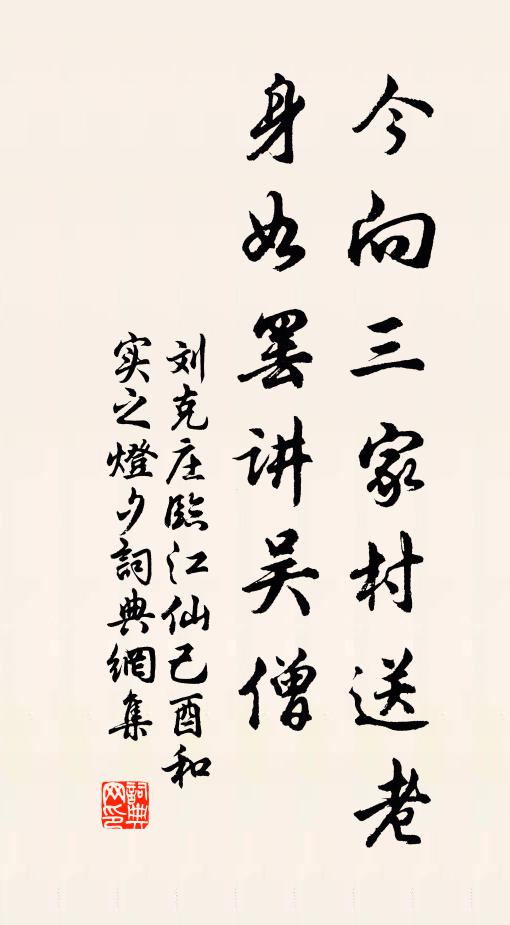 今向三家村送老
身如罢讲吴僧
刘克庄臨江仙己酉和
实之燈夕詞典網集
詞典网印